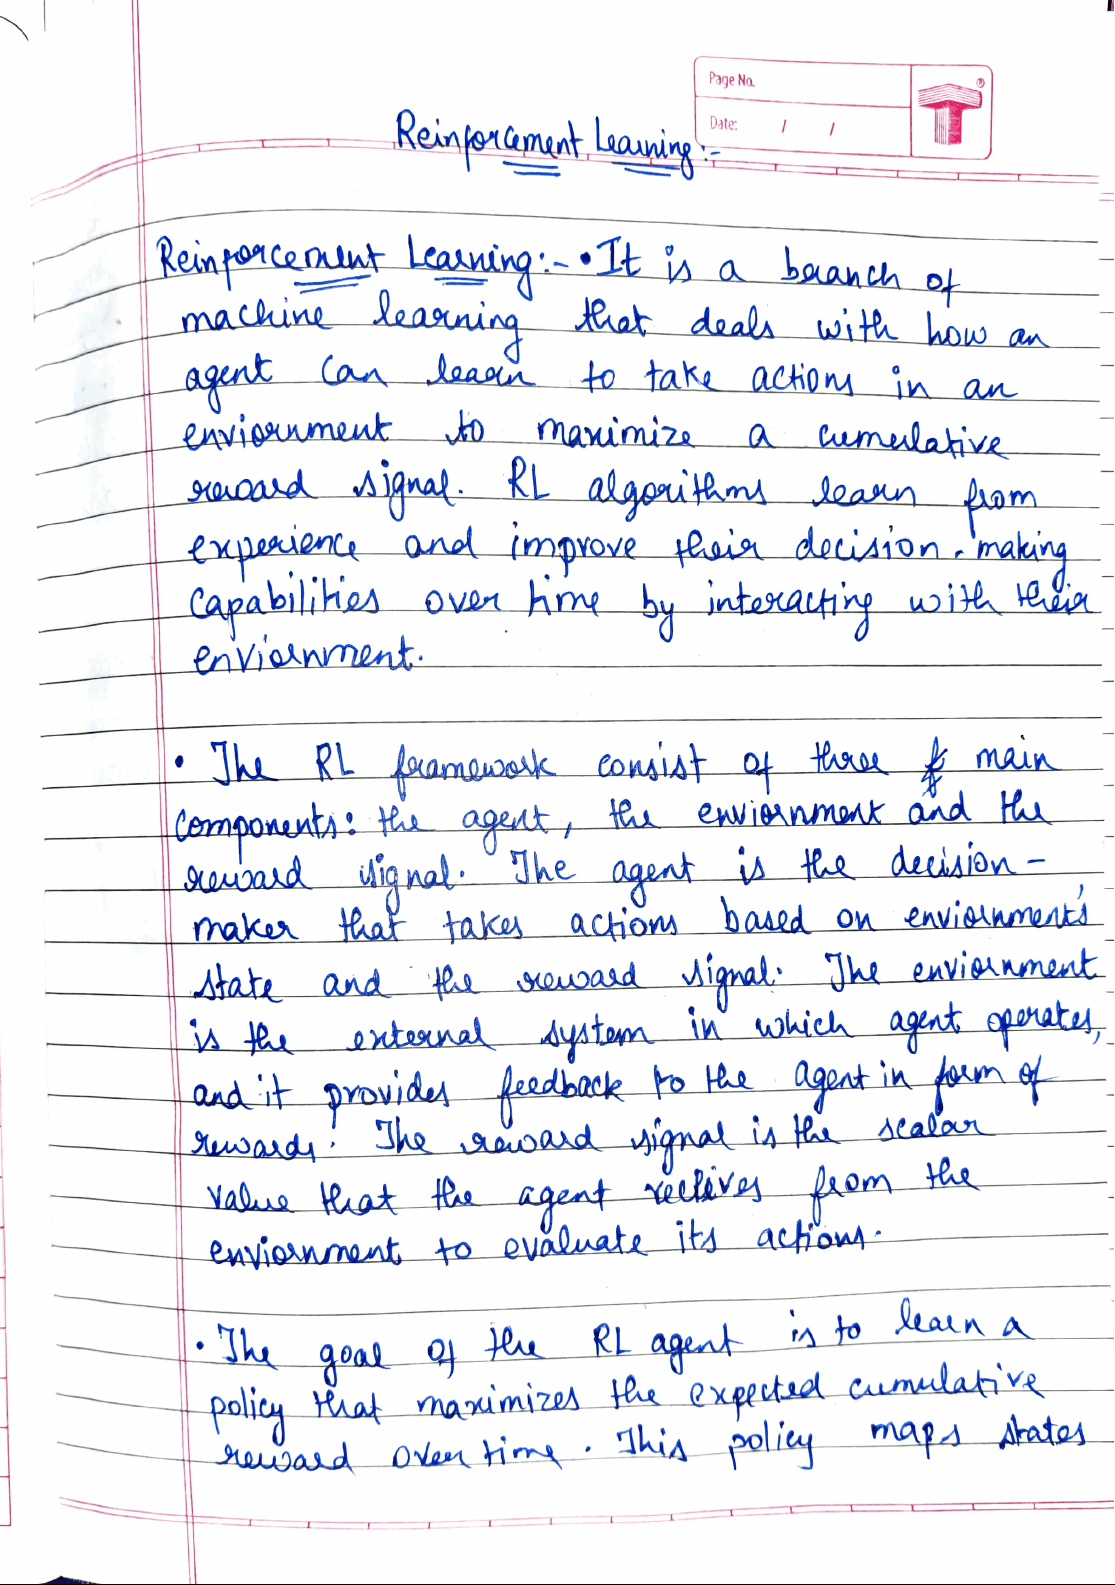 Page No.
Date: / /
Reinforcement Learning:-
Reinforcement Learning:- • It is a branch of
machine learning that deals with how an
agent can learn to take actions in an
enviornment to maximize a cumulative
reward signal. RL algorithms learn from
experience and improve their decision-making
capabilities over time by interacting with their
enviornment.
• The RL framework consist of three main
components: the agent, the enviornment and the
reward signal. The agent is the decision-
maker that takes actions based on enviornment's
state and the reward signal. The enviornment
is the external system in which agent operates,
and it provides feedback to the agent in form of
rewards. The reward signal is the scalar
value that the agent recieves from the
enviornment to evaluate its actions.
• The goal of the RL agent is to learn a
policy that maximizes the expected cumulative
reward over time. This policy maps states